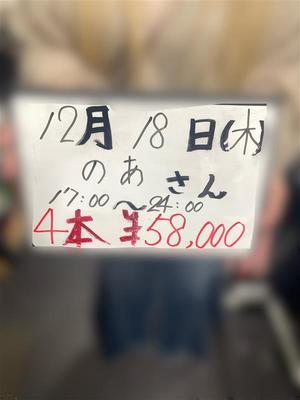 12月 18日(木)
のあさん
17:00〜24:00
4本 ¥58,000